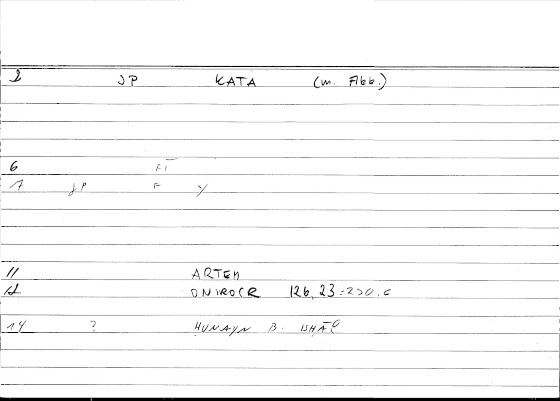 1 JP KATA (m. Abb.)
6 FĪ
7 JP F Y
11 ARTEM
12 ONIROCR 126,23 = 230.6
14 ? ḤUNAYN B. ISḤĀQ